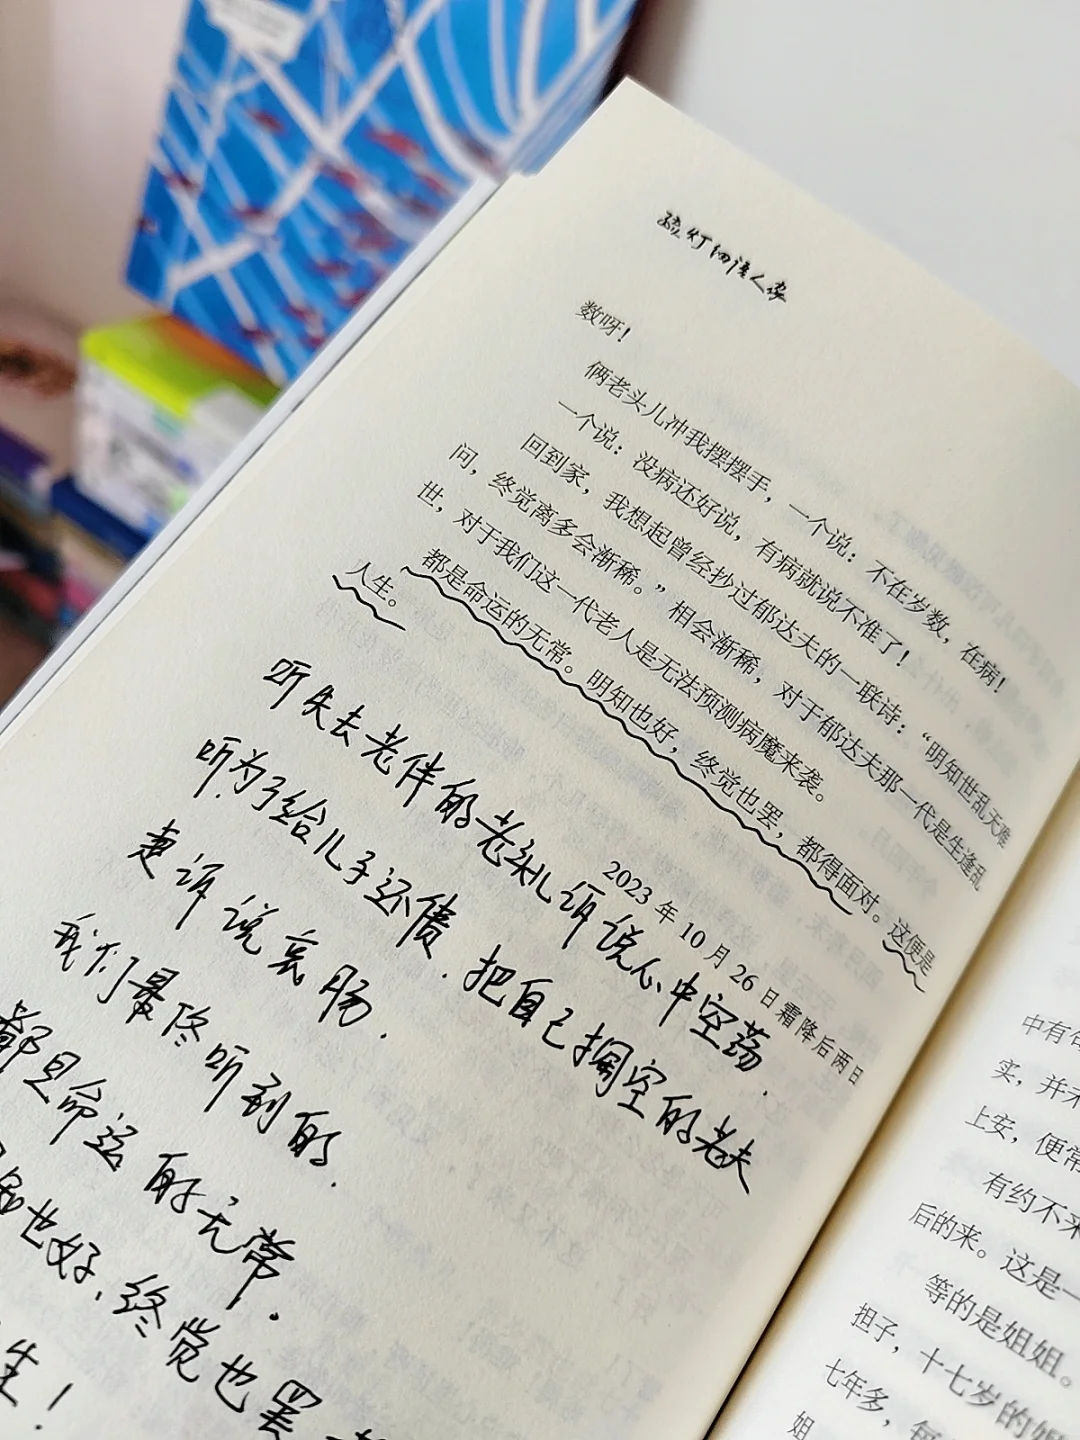 疏灯细语人家
数呀！
俩老头儿冲我摆摆手，一个说：不在岁数，在病！
一个说：没病还好说，有病就说不准了！
回到家，我想起曾经抄过郁达夫的一联诗：“明知世乱天难
问，终觉离多会渐稀。”相会渐稀，对于郁达夫那一代是生逢乱
世，对于我们这一代老人是无法预测病魔来袭。
都是命运的无常。明知也好，终觉也罢，都得面对。这便是
人生。
2023年10月26日霜降后两日
听失去老伴的老头儿诉说心中空荡.
听为了给儿子还债.把自己掏空的老夫
妻诉说衷肠.
我们最终听到的.
都是命运的无常.
也好、终觉也罢
生！
中有
实，并
上安，便常
有约不来
后的来。这是一
等的是姐姐。
担子，十七岁的姐
七年多，每
姐